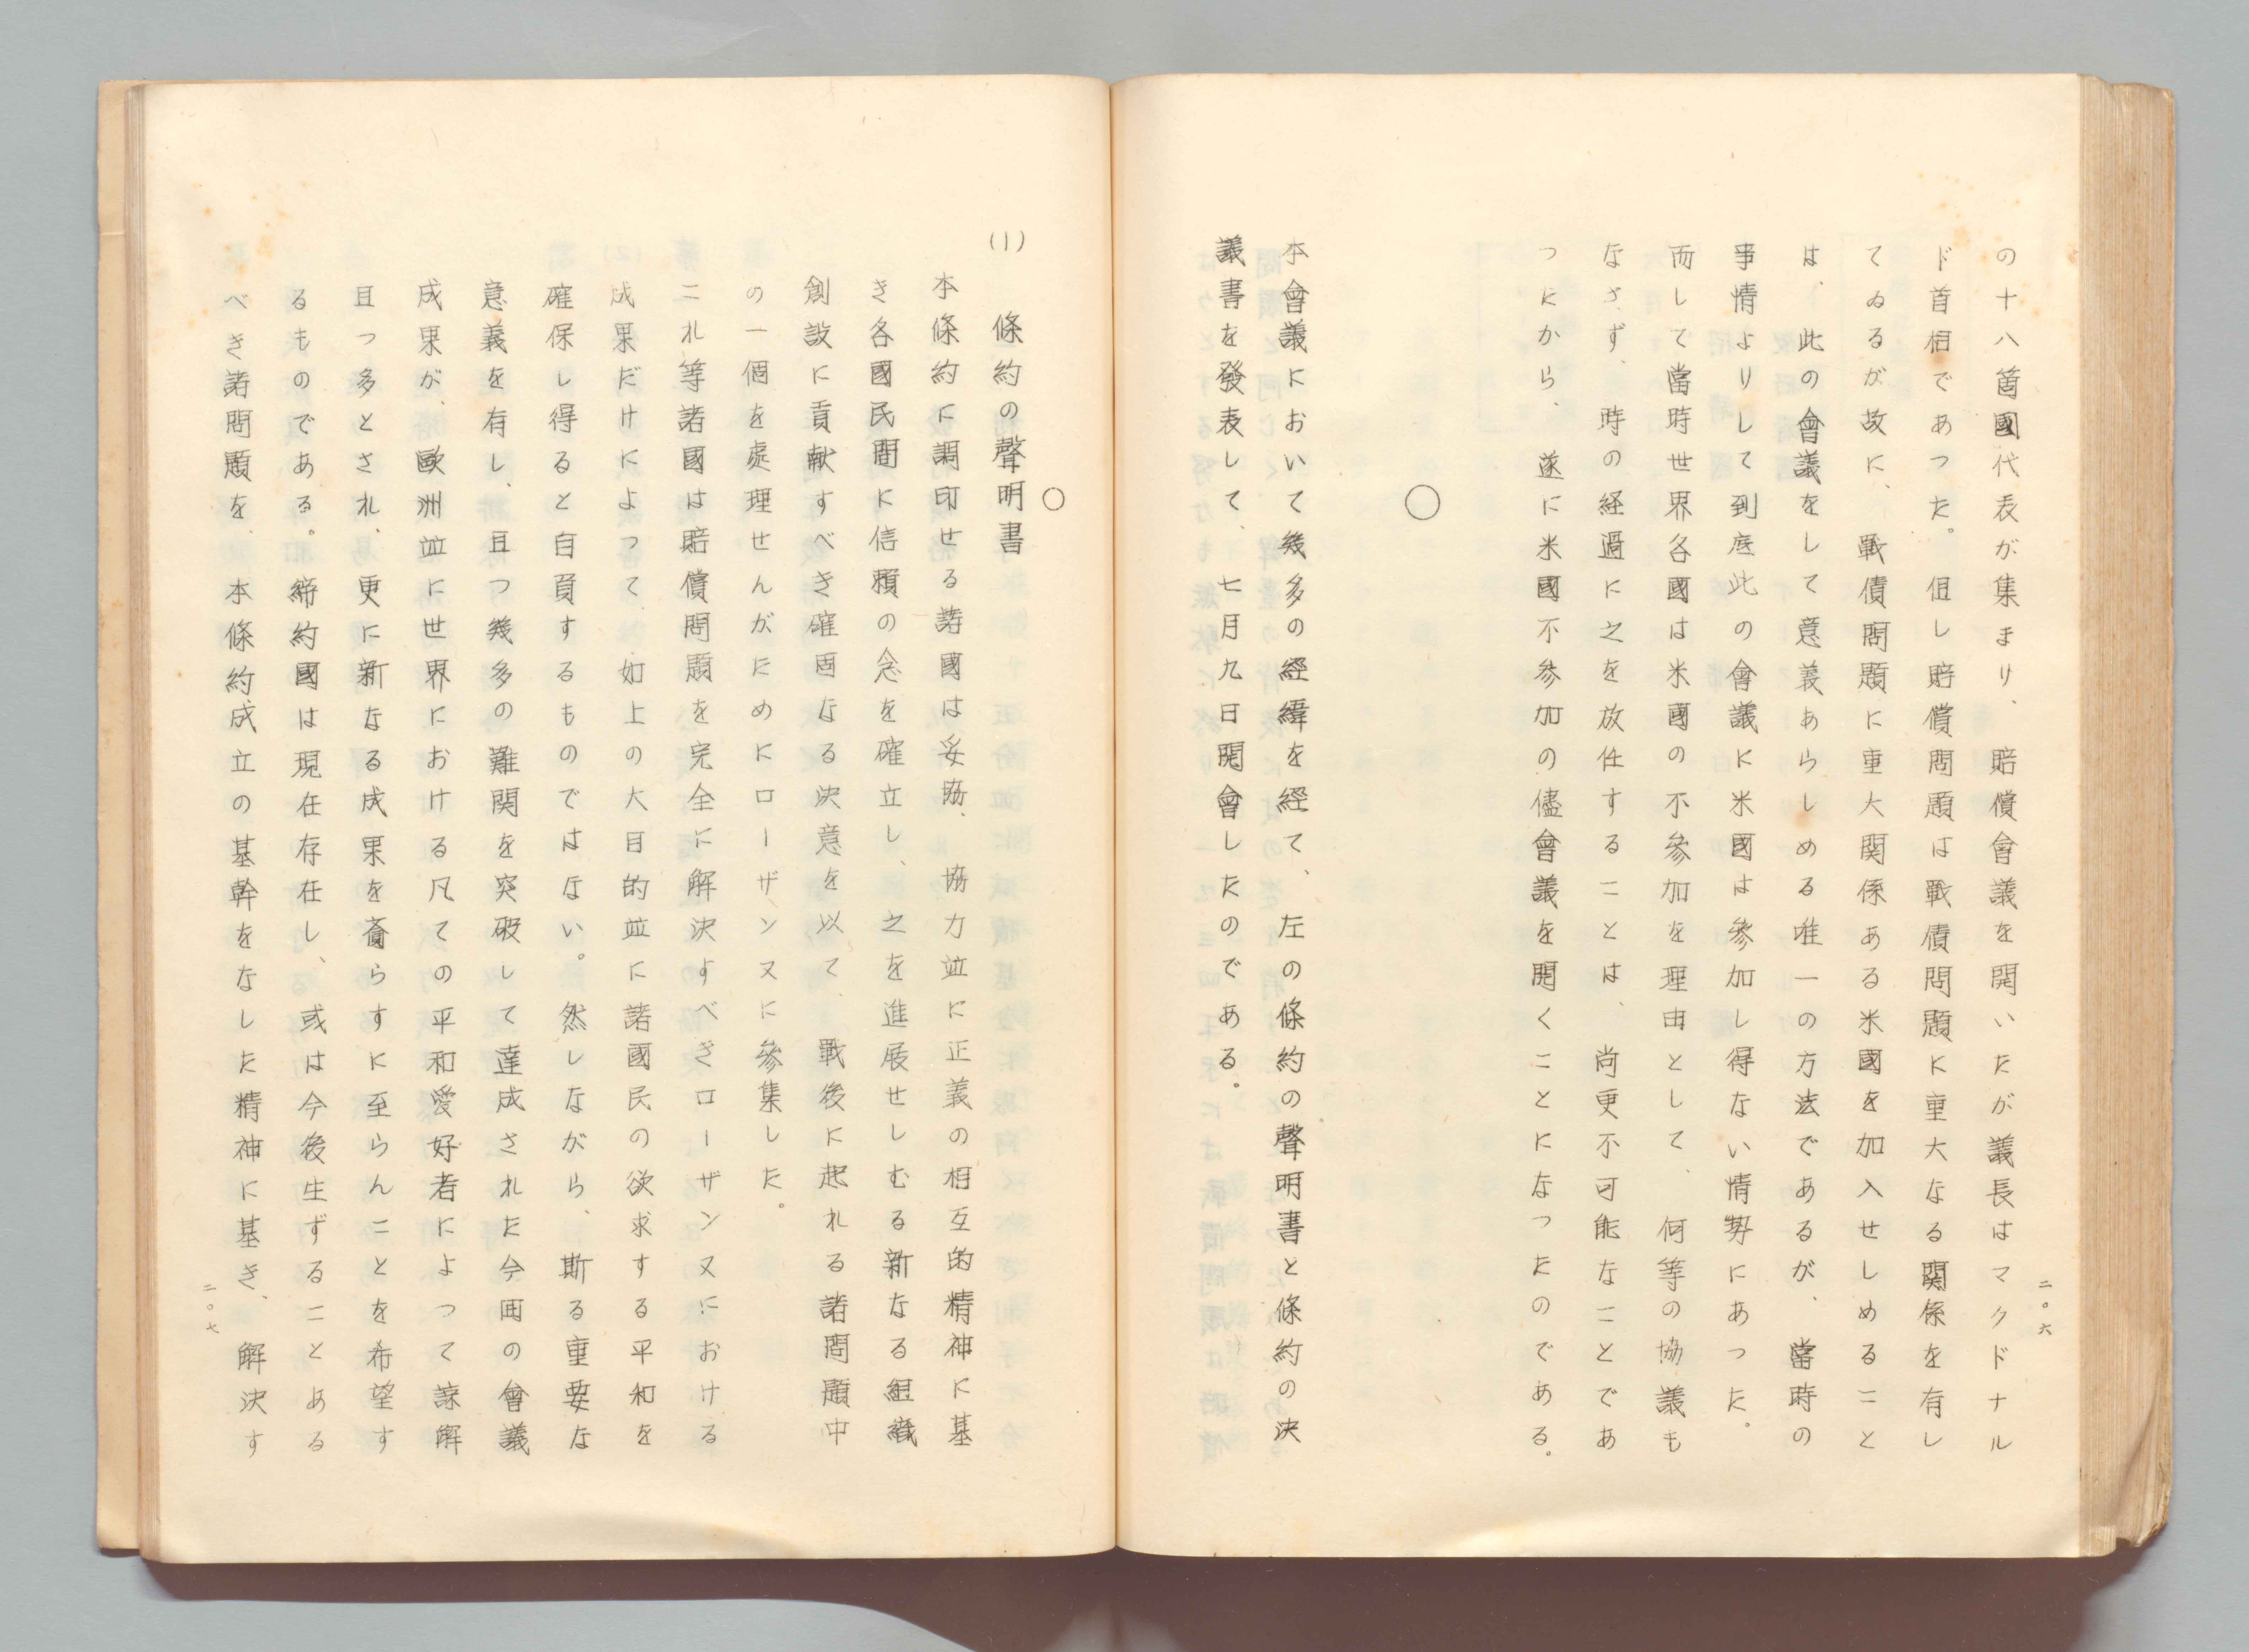 二〇六
の十八箇國代表が集まり、賠償會議を開いたが議長はマクドナル
ド首相であつた。但し賠償問題は戰債問題に重大なる関係を有し
てゐるが故に、戰債問題に重大関係ある米國を加入せしめること
は、此の會議をして意義あらしめる唯一の方法であるが、當時の
事情よりして到底此の會議に米國は參加し得ない情勢にあつた。
而して當時世界各國は米國の不參加を理由として、何等の協議も
なさず、時の経過に之を放任することは、尚更不可能なことであ
つたから、遂に米國不参加の儘會議を開くことになつたのである。
〇
本會議において幾多の経緯を経て、左の條約の聲明書と條約の決
議書を發表して、七月九日閉會したのである。
〇
(1) 條約の聲明書
本條約に調印せる諸國は妥協、協力竝に正義の相互的精神に基
き各國民間に信頼の念を確立し、之を進展せしむる新なる組織
創設に貢献すべき確固なる決意を以て、戰後に起れる諸問題中
の一個を處理せんがためにローザンヌに參集した。
これ等諸國は賠償問題を完全に解決すべきローザンヌにおける
成果だけによつて、如上の大目的竝に諸國民の欲求する平和を
確保し得ると自負するものではない。然しながら、斯る重要な
意義を有し、且つ幾多の難関を突破して達成された今回の會議
成果が、歐洲竝に世界における凡ての平和愛好者によつて諒解
且つ多とされ、更に新なる成果を齎らすに至らんことを希望す
るものである。締約國は現在存在し、或は今後生ずることある
べき諸問題を、本條約成立の基幹をなした精神に基き、解決す
二〇七